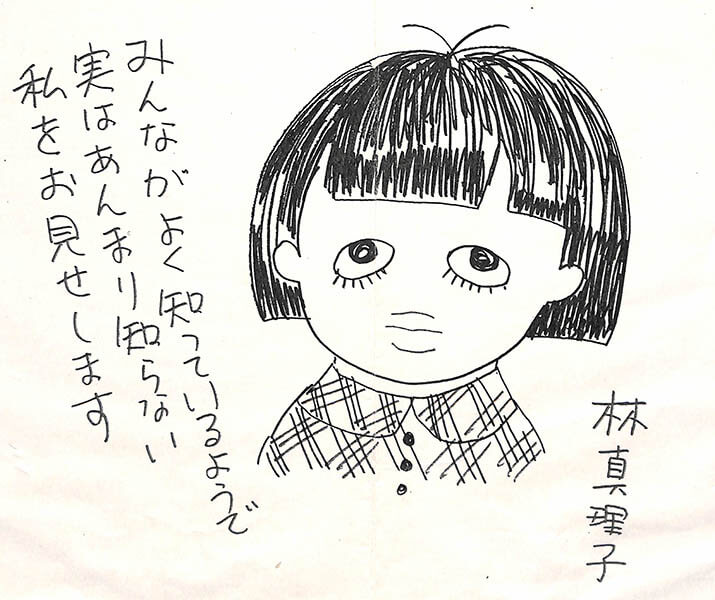 みんながよく知っているようで
実はあんまり知らない
私をお見せします
林真理子